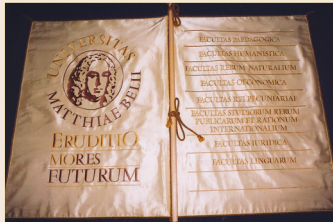 UNIVERSITAS
MATTHIAE BELII
ERUDITIO
MORES
FUTURUM
FACULTAS PAEDAGOGICA
FACULTAS HUMANISTICA
FACULTAS RERUM NATURALIUM
FACULTAS OECONOMICA
FACULTAS REI PECUNIARIAE
FACULTAS STUDIORUM RERUM
PUBLICARUM ET RATIONUM
INTERNATIONALIUM
FACULTAS IURIDICA
FACULTAS LINGUARUM